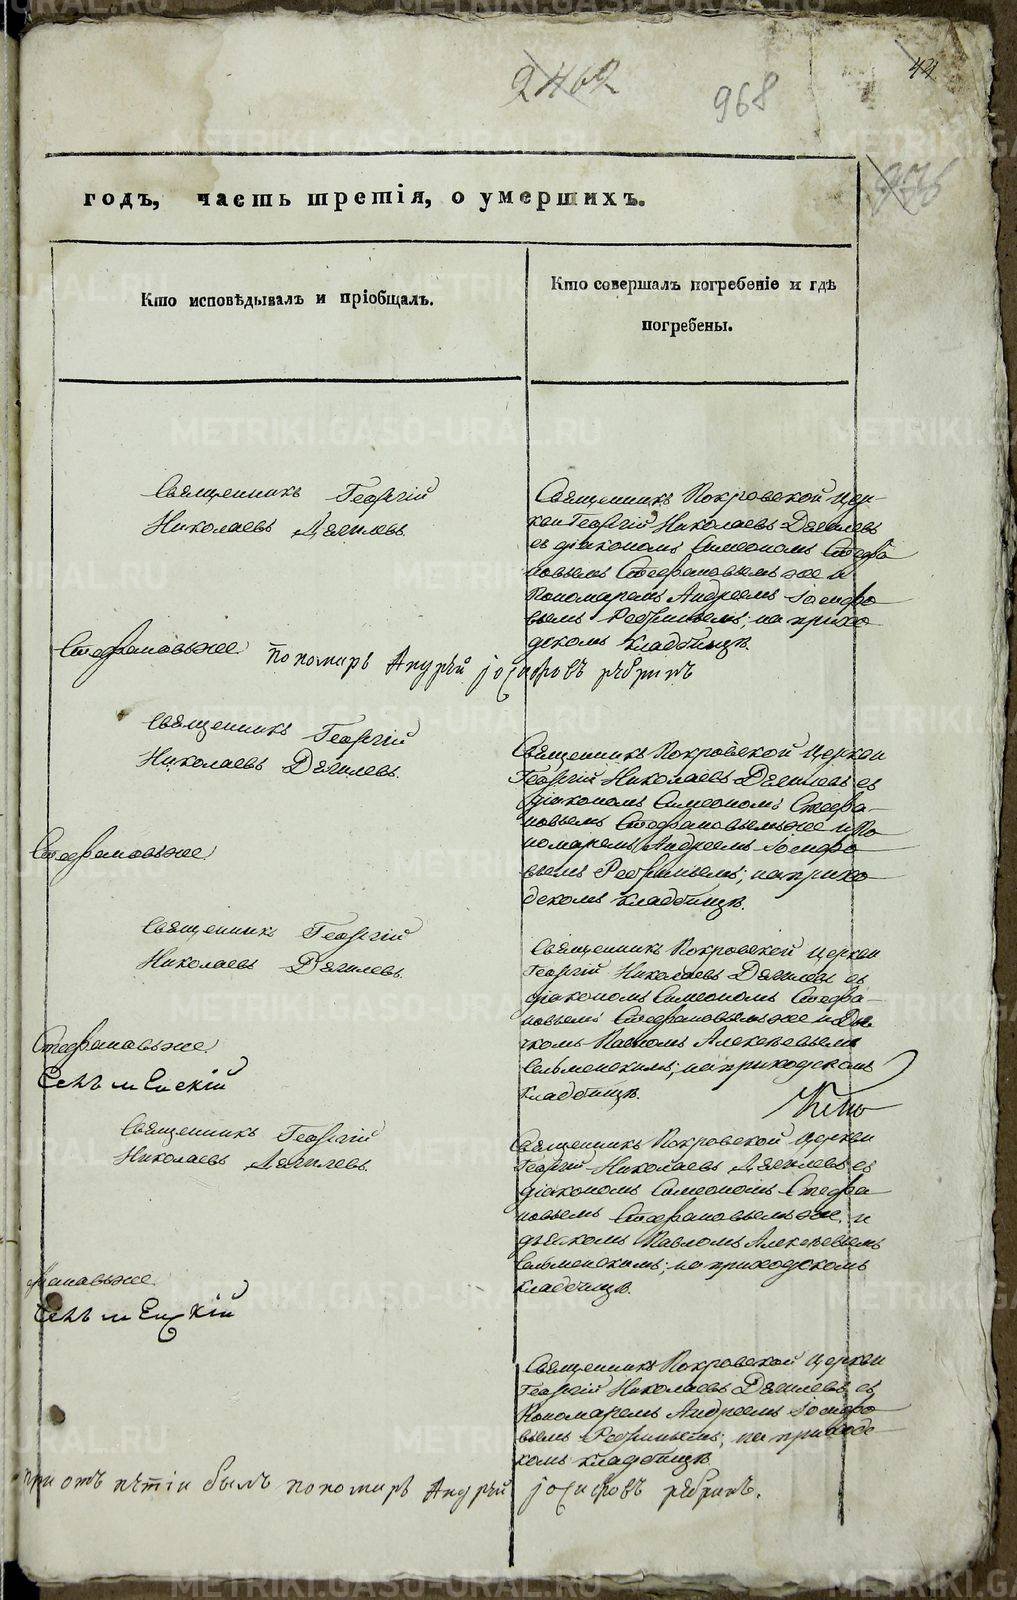 2462
968
44
годъ, часть третія, о умершихъ.
Кто исповѣдывалъ и пріобщалъ.
Кто совершалъ погребеніе и гдѣ
погребены.
Священникъ Георгій
Николаевъ Дягилевъ.
Священникъ Покровской цер-
кви Георгій Николаевъ Дягилевъ
съ діакономъ Симеономъ Стефа
новымъ Стефановымъ же и
Пономаремъ Андреемъ Іосифо
вымъ Ребринымъ; на прихо
дскомъ кладбищѣ.
Стефановъ же
Пономарь Андрѣй Іосифовъ рѣбринъ
Священникъ Георгій
Николаевъ Дягилевъ.
Священникъ Покровской церкви
Георгій Николаевъ Дягилевъ съ
діакономъ Симеономъ Стефа-
новымъ Стефановымъ же и По
номаремъ Андреемъ Іосифо
вымъ Ребринымъ; на прихо
дскомъ кладбищѣ.
Стефановъ же
Священникъ Георгій
Николаевъ Дягилевъ.
Священникъ Покровской церкви
Георгій Николаевъ Дягилевъ съ
діакономъ Симеономъ Стефа-
новымъ Стефановымъ же и Дья
чкомъ Павломъ Алексѣевымъ
Сельменскимъ; на приходскомъ
кладбищѣ.
Стефановъ же
Селъменскій
Священникъ Георгій
Николаевъ Дягилевъ.
Священникъ Покровской церкви
Георгій Николаевъ Дягилевъ съ
діакономъ Симеономъ Стефа
новымъ Стефановымъ же, и
дьячкомъ Павломъ Алексѣевымъ
Сельменскимъ; на приходскомъ
кладбищѣ.
фановъ же
Селъменскій
Священникъ Покровской церкви
Георгій Николаевъ Дягилевъ съ
Пономаремъ Андреемъ Іосифо
вымъ Ребринымъ; на приходс
комъ кладбищѣ
при отъ пѣтіи былъ пономарь Андрѣй Іосифовъ рѣбринъ.
METRIKI.GASO-URAL.RU